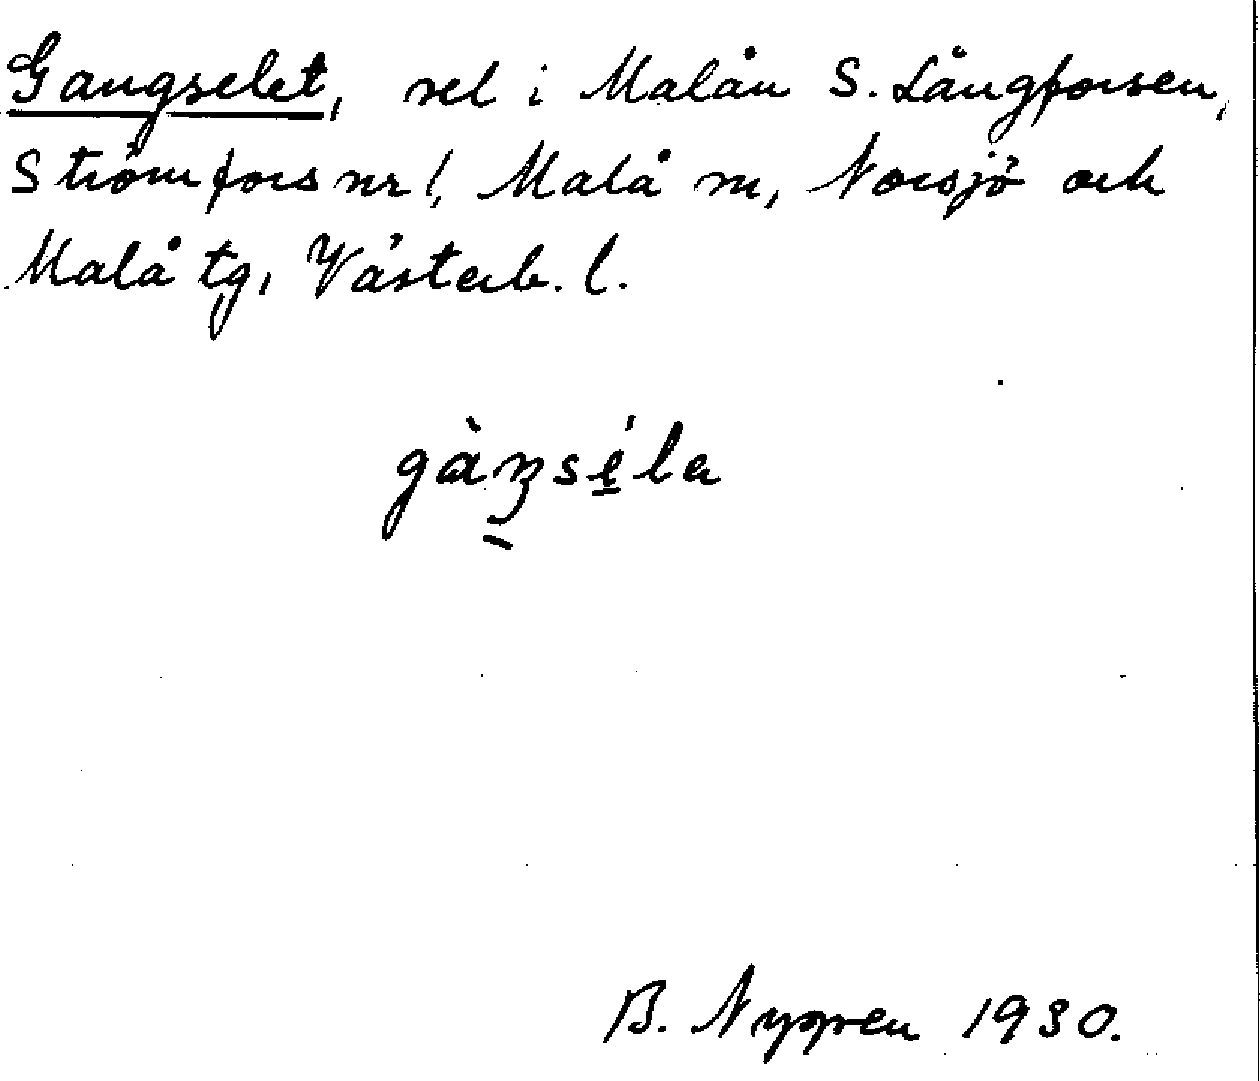 Gangselet, sel i Malån S. Långforsen,
Strömfors nr 1, Malå sn, Norsjö och
Malå tg, Västerb. l.
gàŋsé̱la
B. Nygren 1930.